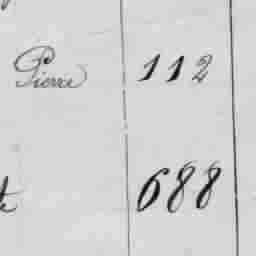 Pierre 112
te 688